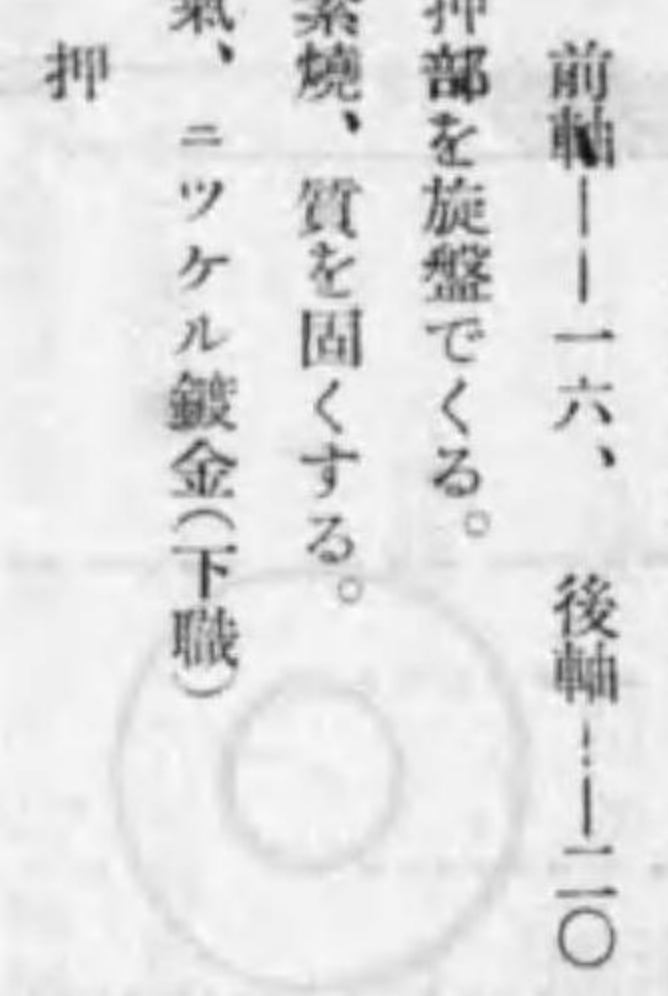 前軸――一六、　後軸――二〇
押部を旋盤でくる。
素燒、質を固くする。
氣、ニツケル鍍金(下職)
押